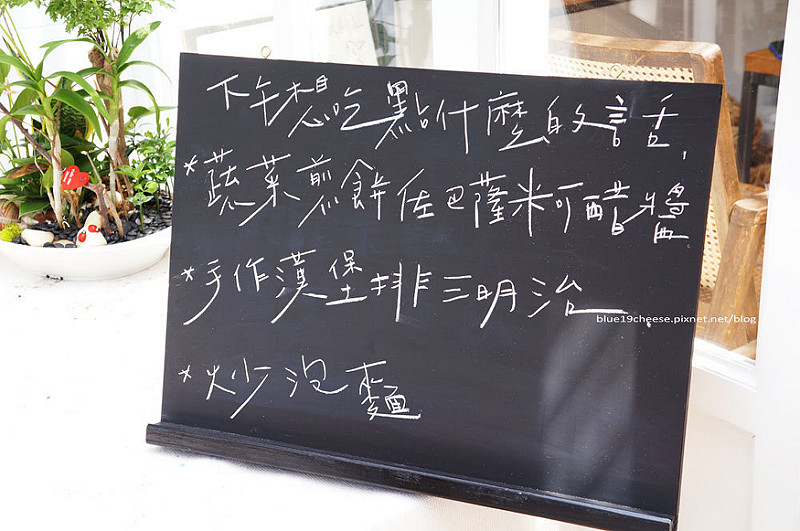 下午想吃點什麼的話,
*蔬菜煎餅佐巴薩米可醋醬
*手作漢堡排三明治
blue19cheese.pixnet.net/blog
*炒泡麵